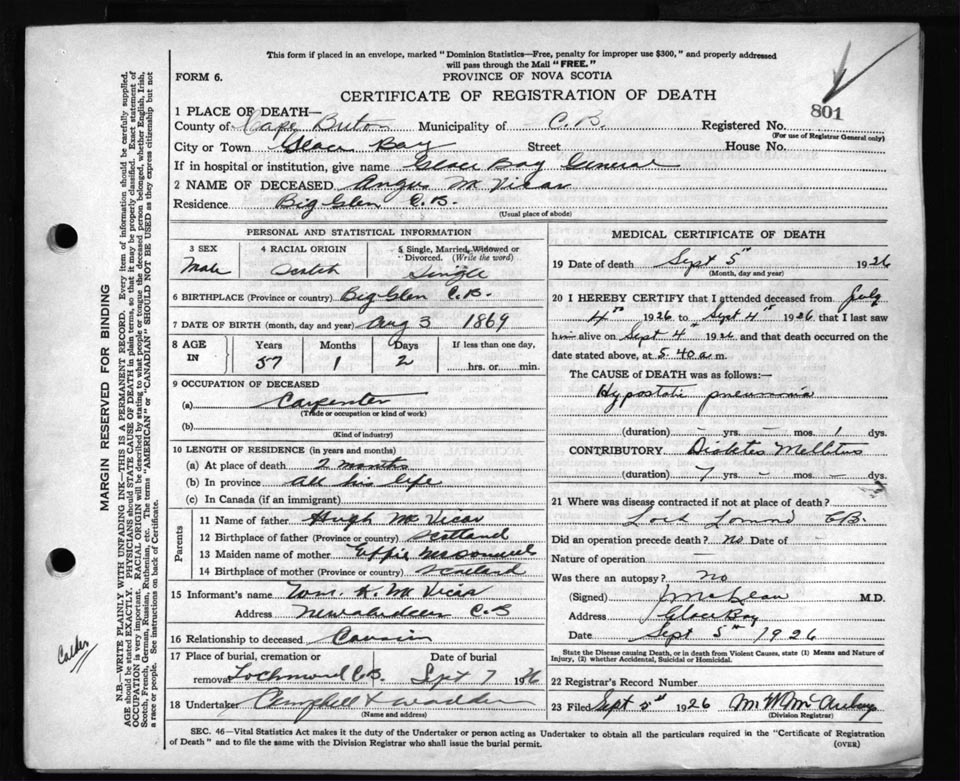 This form if placed in an envelope, marked "Dominion Statistics—Free, penalty for improper use $300," and properly addressed
will pass through the Mail "FREE."
FORM 6.
PROVINCE OF NOVA SCOTIA
CERTIFICATE OF REGISTRATION OF DEATH
801
1 PLACE OF DEATH—
County of Cape Breton Municipality of C.B. Registered No.
(For use of Registrar General only)
City or Town Glace Bay Street House No.
If in hospital or institution, give name Glace Bay General
2 NAME OF DECEASED Angus McVicar
Residence Big Glen C.B.
(Usual place of abode)
PERSONAL AND STATISTICAL INFORMATION
3 SEX
Male
4 RACIAL ORIGIN
Scotch
5 Single, Married, Widowed or
Divorced. (Write the word)
Single
6 BIRTHPLACE (Province or country) Big Glen C.B.
7 DATE OF BIRTH (month, day and year) Aug 3 1869
8 AGE
IN
Years
57
Months
1
Days
2
If less than one day,
hrs. or min.
9 OCCUPATION OF DECEASED
(a) Carpenter
(Trade or occupation or kind of work)
(b)
(Kind of industry)
10 LENGTH OF RESIDENCE (in years and months)
(a) At place of death 2 months
(b) In province all his life
(c) In Canada (if an immigrant)
Parents
11 Name of father Hugh McVicar
12 Birthplace of father (Province or country) Scotland
13 Maiden name of mother Effie
14 Birthplace of mother (Province or country) Scotland
15 Informant's name K. McVicar
Address New Aberdeen C.B
16 Relationship to deceased Cousin
17 Place of burial, cremation or
removal Lochmond C.B.
Date of burial
Sept 7 1926
18 Undertaker Campbell &
(Name and address)
MEDICAL CERTIFICATE OF DEATH
19 Date of death Sept 5th 1926
(Month, day and year)
20 I HEREBY CERTIFY that I attended deceased from July
4th 1926 to Sept 4th 1926 that I last saw
him alive on Sept 4th 1926 and that death occurred on the
date stated above, at 5.40 a.m.
The CAUSE of DEATH was as follows:—
Hypostatic pneumonia
(duration) — yrs. — mos. 1 dys.
CONTRIBUTORY Diabetes Mellitus
(duration) 7 yrs. — mos. — dys.
21 Where was disease contracted if not at place of death?
Loch Lomond CB.
Did an operation precede death? No Date of
Nature of operation —
Was there an autopsy? No
(Signed) J McLean M.D.
Address Glace Bay
Date Sept 5th 1926
State the Disease causing Death, or in death from Violent Causes, state (1) Means and Nature of
Injury, (2) whether Accidental, Suicidal or Homicidal.
22 Registrar's Record Number
23 Filed Sept 1926
(Division Registrar)
SEC. 46—Vital Statistics Act makes it the duty of the Undertaker or person acting as Undertaker to obtain all the particulars required in the "Certificate of Registration
of Death" and to file the same with the Division Registrar who shall issue the burial permit.
(OVER)
MARGIN RESERVED FOR BINDING
N.B.—WRITE PLAINLY WITH UNFADING INK—THIS IS A PERMANENT RECORD. Every item of information should be carefully supplied.
AGE should be stated EXACTLY. PHYSICIANS should STATE CAUSE OF DEATH in plain terms, so that it may be properly classified. Exact statement of
OCCUPATION is very important. RACIAL ORIGIN will be described by stating to what people or tongue the deceased person belonged, whether English, Irish,
Scotch, French, German, Russian, Ruthenian, etc. The terms "AMERICAN" or "CANADIAN" SHOULD NOT BE USED as they express citizenship but not
a race or people. See instructions on back of Certificate.